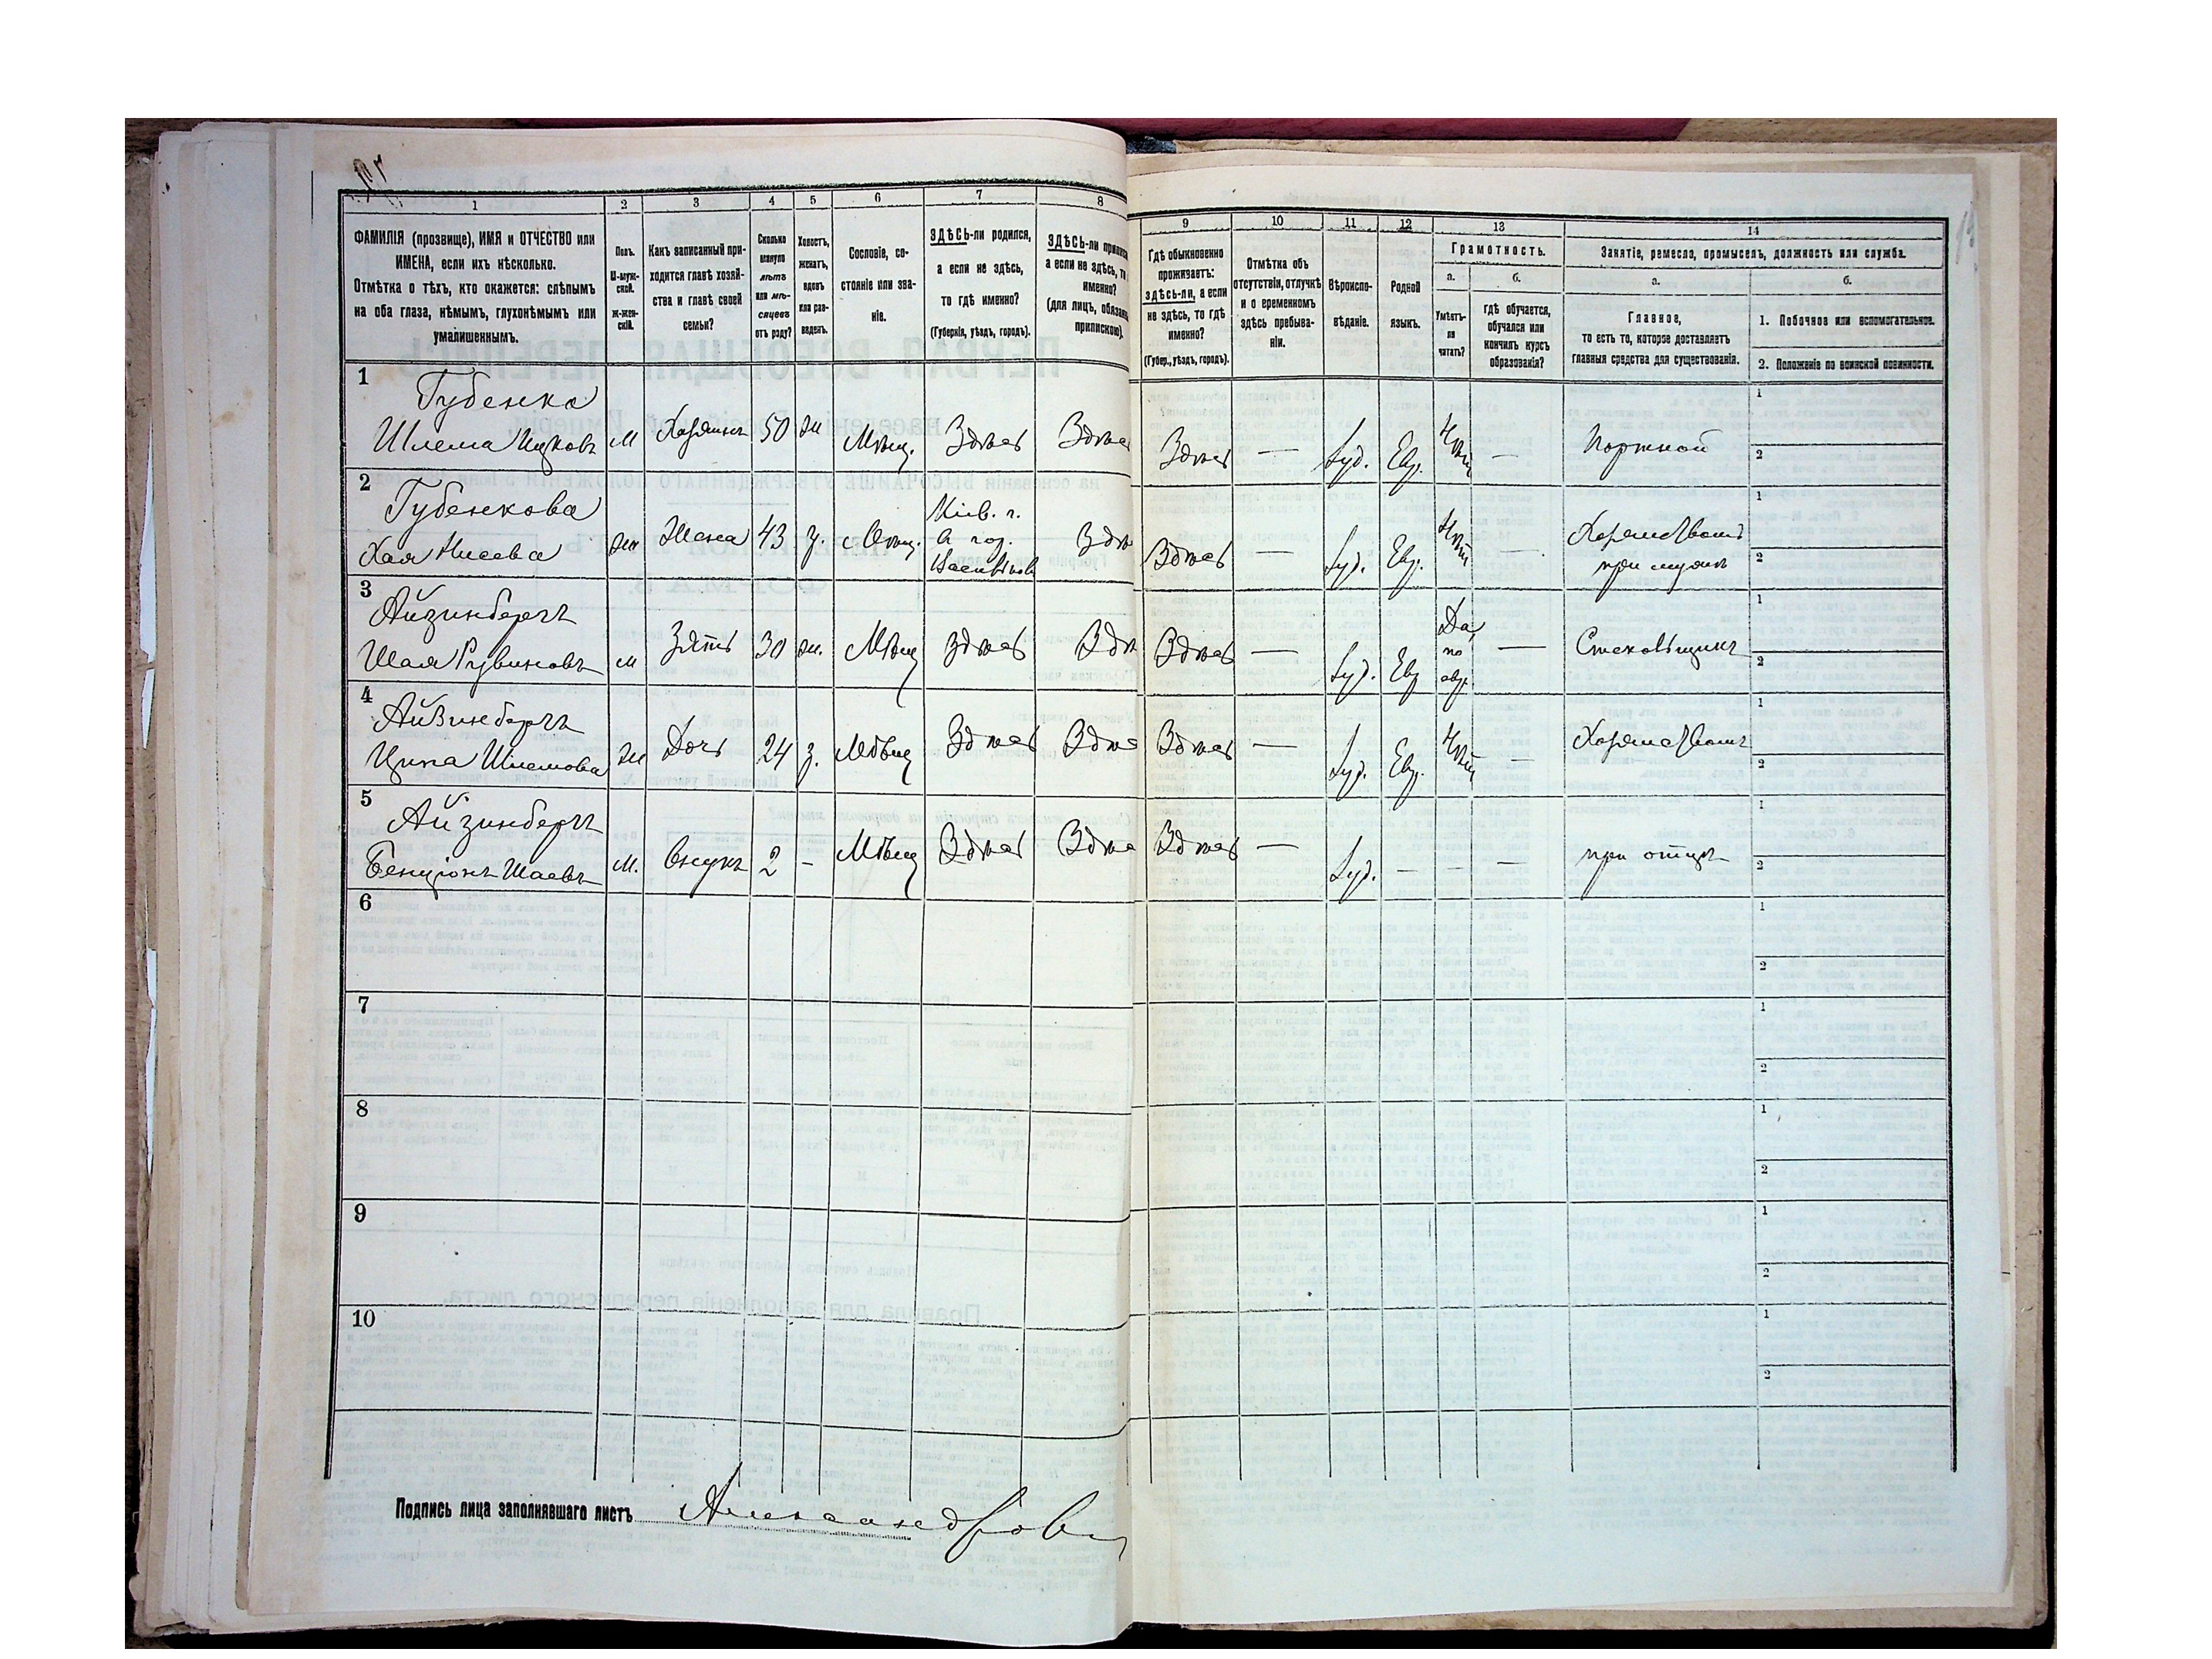 1
2
3
4
5
6
7
8
ФАМИЛІЯ (прозвище), ИМЯ и ОТЧЕСТВО или
ИМЕНА, если ихъ нѣсколько.
Отмѣтка о тѣхъ, кто окажется: слѣпымъ
на оба глаза, нѣмымъ, глухонѣмымъ или
умалишеннымъ.
Полъ.
М-муж-
ской.
Ж-жен-
скій.
Какъ записанный при-
ходится главѣ хозяй-
ства и главѣ своей
семьи?
Сколько
минуло
лѣтъ
или мѣ-
сяцевъ
отъ роду?
Холостъ,
женатъ,
вдовъ
или раз-
веденъ.
Сословіе, со-
стояніе или зва-
ніе.
ЗДѢСЬ-ли родился,
а если не здѣсь,
то гдѣ именно?
(Губернія, уѣздъ, городъ).
ЗДѢСЬ-ли
а если не здѣсь, то
именно?
(для лицъ,
припискою).
9
10
11
12
13
14
Гдѣ обыкновенно
проживаетъ:
здѣсь-ли, а если
не здѣсь, то гдѣ
именно?
(Губер., уѣздъ, городъ).
Отмѣтка объ
отсутствіи, отлучкѣ
и о временномъ
здѣсь пребыва-
ніи.
Вѣроиспо-
вѣданіе.
Родной
языкъ.
Грамотность.
а.
б.
Умѣетъ-
ли
читать?
гдѣ обучается,
обучался или
кончилъ курсъ
образованія?
Занятіе, ремесло, промыселъ, должность или служба.
а.
б.
Главное,
то есть то, которое доставляетъ
главныя средства для существованія.
1. Побочное или вспомогательное.
2. Положеніе по воинской повинности.
1
Губенко
Шлема Ицковъ м Хозяинъ 50 ж Мѣщ. Здѣсь
Здѣсь — Іуд. Евр. Нѣтъ — Портной
1
2
2
Губенкова
Хая
ж Жена 43 з. Мѣщ.
Кіев. г.
Здѣсь — Іуд. Евр. Нѣтъ —
при мужѣ
1
2
3
Айзинбергъ
Шая Рувиновъ м Зять 30 ж. Мѣщ Здѣсь
Здѣсь — Іуд. Евр
Да,
по
евр.
— Стекольщикъ
1
2
4
Айзинбергъ
Ципа Шлемова ж Дочь 24 з. Мѣщ Здѣсь
Здѣсь — Іуд. Евр. Нѣтъ —
1
2
5
Айзинбергъ
Бенціонъ Шаевъ м. Внукъ 2 – Мѣщ Здѣсь
Здѣсь — Іуд. — — — при отцѣ
1
2
6
1
2
7
1
2
8
1
2
9
1
2
10
1
2
Подпись лица заполнявшаго листъ